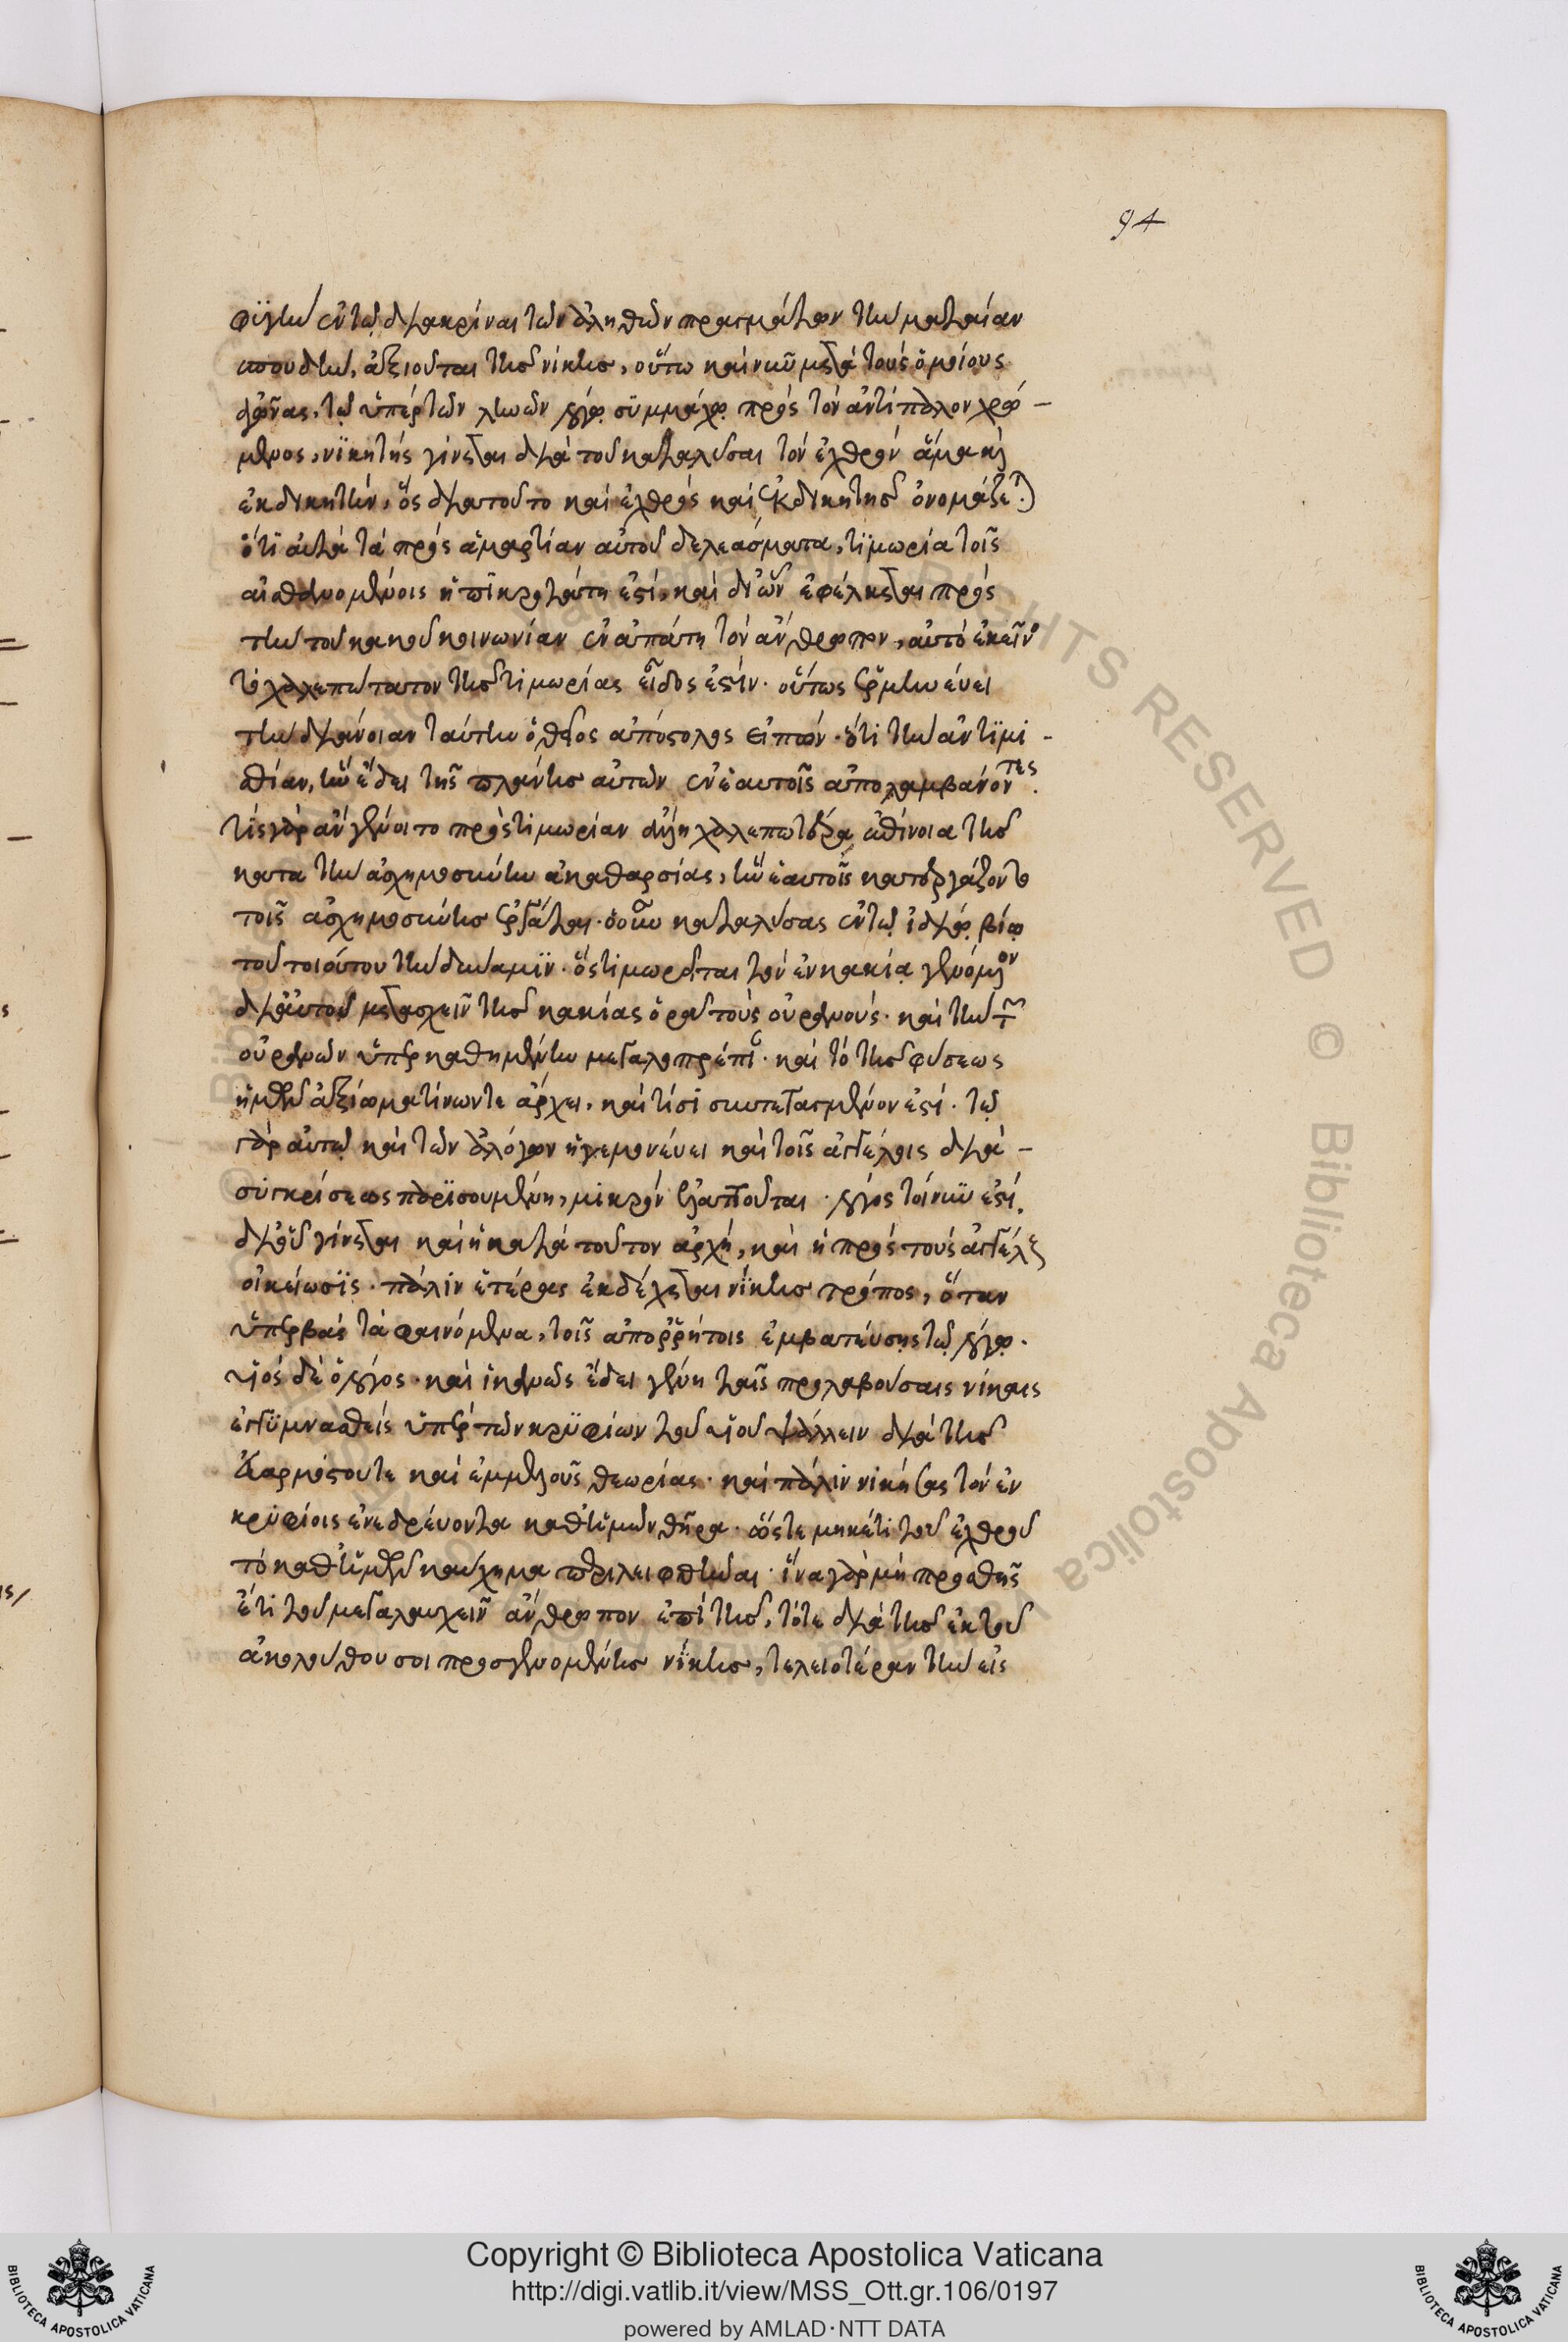 94
φυγὴν ἐν τῷ διακρίναι τῶν ἀληθῶν πραγμάτων τὴν ματαίαν
σπουδὴν, ἀξιοῦται τῆς νίκης, οὕτω καὶ νῦν μετὰ τοὺς ὁμοίους
ἀγῶνας, τῷ ὑπὲρ τῶν ληνῶν λόγῳ συμμάχῳ πρὸς τὸν ἀντίπαλον χρώ-
μενος, νικητὴς γίνεται διὰ τοῦ καταλύσαι τὸν ἐχθρὸν ἅμα καὶ
ἐκδικητὴν, ὃς διατοῦτο καὶ ἐχθρὸς καὶ ἐκδικητὴς ὀνομάζεται
ὅτι αὐτὰ τὰ πρὸς ἁμαρτίαν αὐτοῦ δελεάσματα, τιμωρία τοῖς
αἰσθανομένοις ἡ πικροτάτη ἐστί, καὶ δι' ὧν ἐφέλκεται πρὸς
τὴν τοῦ κακοῦ κοινωνίαν ἐν ἀπάτη τὸν ἄνθρωπον, αὐτὸ ἐκεῖνο
τὸ χαλεπώτατον τῆς τιμωρίας εἶδος ἐστίν. οὕτως ἑρμηνεύει
τὴν διάνοιαν ταύτην ὁ θεῖος ἀπόστολος εἰπών· ὅτι τὴν ἀντιμι-
σθίαν, ἣν ἔδει τῆς πλάνης αὐτῶν ἐν ἑαυτοῖς ἀπολαμβάνοντες.
τίς γὰρ ἂν γένοιτο πρὸς τιμωρίαν ἄλλη χαλεπωτέρα ἐπίνοια τῆς
κατα τὴν ἀσχημοσύνην ἀκαθαρσίας, ἣν ἑαυτοῖς κατεργάζονται
τοῖς ἀσχημοσύνης ἐργάται. ὁ οὖν καταλύσας ἐν τῷ ἰδίῳ βίῳ
τοῦ τοιούτου τὴν δύναμιν. ὃς τιμωρεῖται τὸν ἐν κακίᾳ γενόμενον
δι' αὐτοῦ μετασχεῖν τῆς κακίας ὁρᾷ τοὺς οὐρανούς. καὶ τὴν τῶν
οὐρανῶν ὑπερκαθημένην μεγαλοπρέπειαν. καὶ τὸ τῆς φύσεως
ἡμῶν ἀξίωμα τίνων τε ἄρχει, καὶ τίσι συντεταγμένον ἐστί. τῷ
γὰρ αὐτῷ καὶ τῶν ἀλόγων ἡγεμονεύει καὶ τοῖς ἀγγέλοις διὰ-
συγκρίσεως παρισουμένη, μικρὸν ἐλαττοῦται. λόγος τοίνυν ἐστί,
δι' οὗ γίνεται καὶ ἡ κατὰ τούτων ἀρχή, καὶ ἡ πρὸς τοὺς ἀγγέλους
οἰκείωσις. πάλιν ἑτέρας ἐκδέχεται νίκης τρόπος, ὅταν
ὑπερβὰς τὰ φαινόμενα, τοῖς ἀπορρήτοις ἐμβατεύσῃς τῷ λόγῳ.
υἱὸς δὲ ὁ λόγος. καὶ ἱκανῶς ἔδει γένη ταῖς προλαβούσαις νίκαις
ἐγγυμνασθεὶς ὑπὲρ τῶν κρυφίων τοῦ υἱοῦ ψάλλειν διὰ τῆς
ἐναρμόστου τε καὶ ἐμμελοῦς θεωρίας. καὶ πάλιν νικήσας τὸν ἐν
κρυφίοις ἐνεδρεύοντα καθ' ἡμῶν θῆρα. ὥστε μηκέτι τοῦ ἐχθροῦ
τὸ καθ' ἡμῶν καύχημα περιλειφθῆναι. ἵνα γὰρ μὴ προσθῇς
ἔτι τοῦ μεγαλαυχεῖν ἄνθρωπον ἐπὶ τῆς, τότε διὰ τῆς ἐκ τοῦ
ἀκολούθου σοι προσγενομένης νίκης, τελειοτέραν τὴν εἰς
Copyright © Biblioteca Apostolica Vaticana
http://digi.vatlib.it/view/MSS_Ott.gr.106/0197
powered by AMLAD·NTT DATA